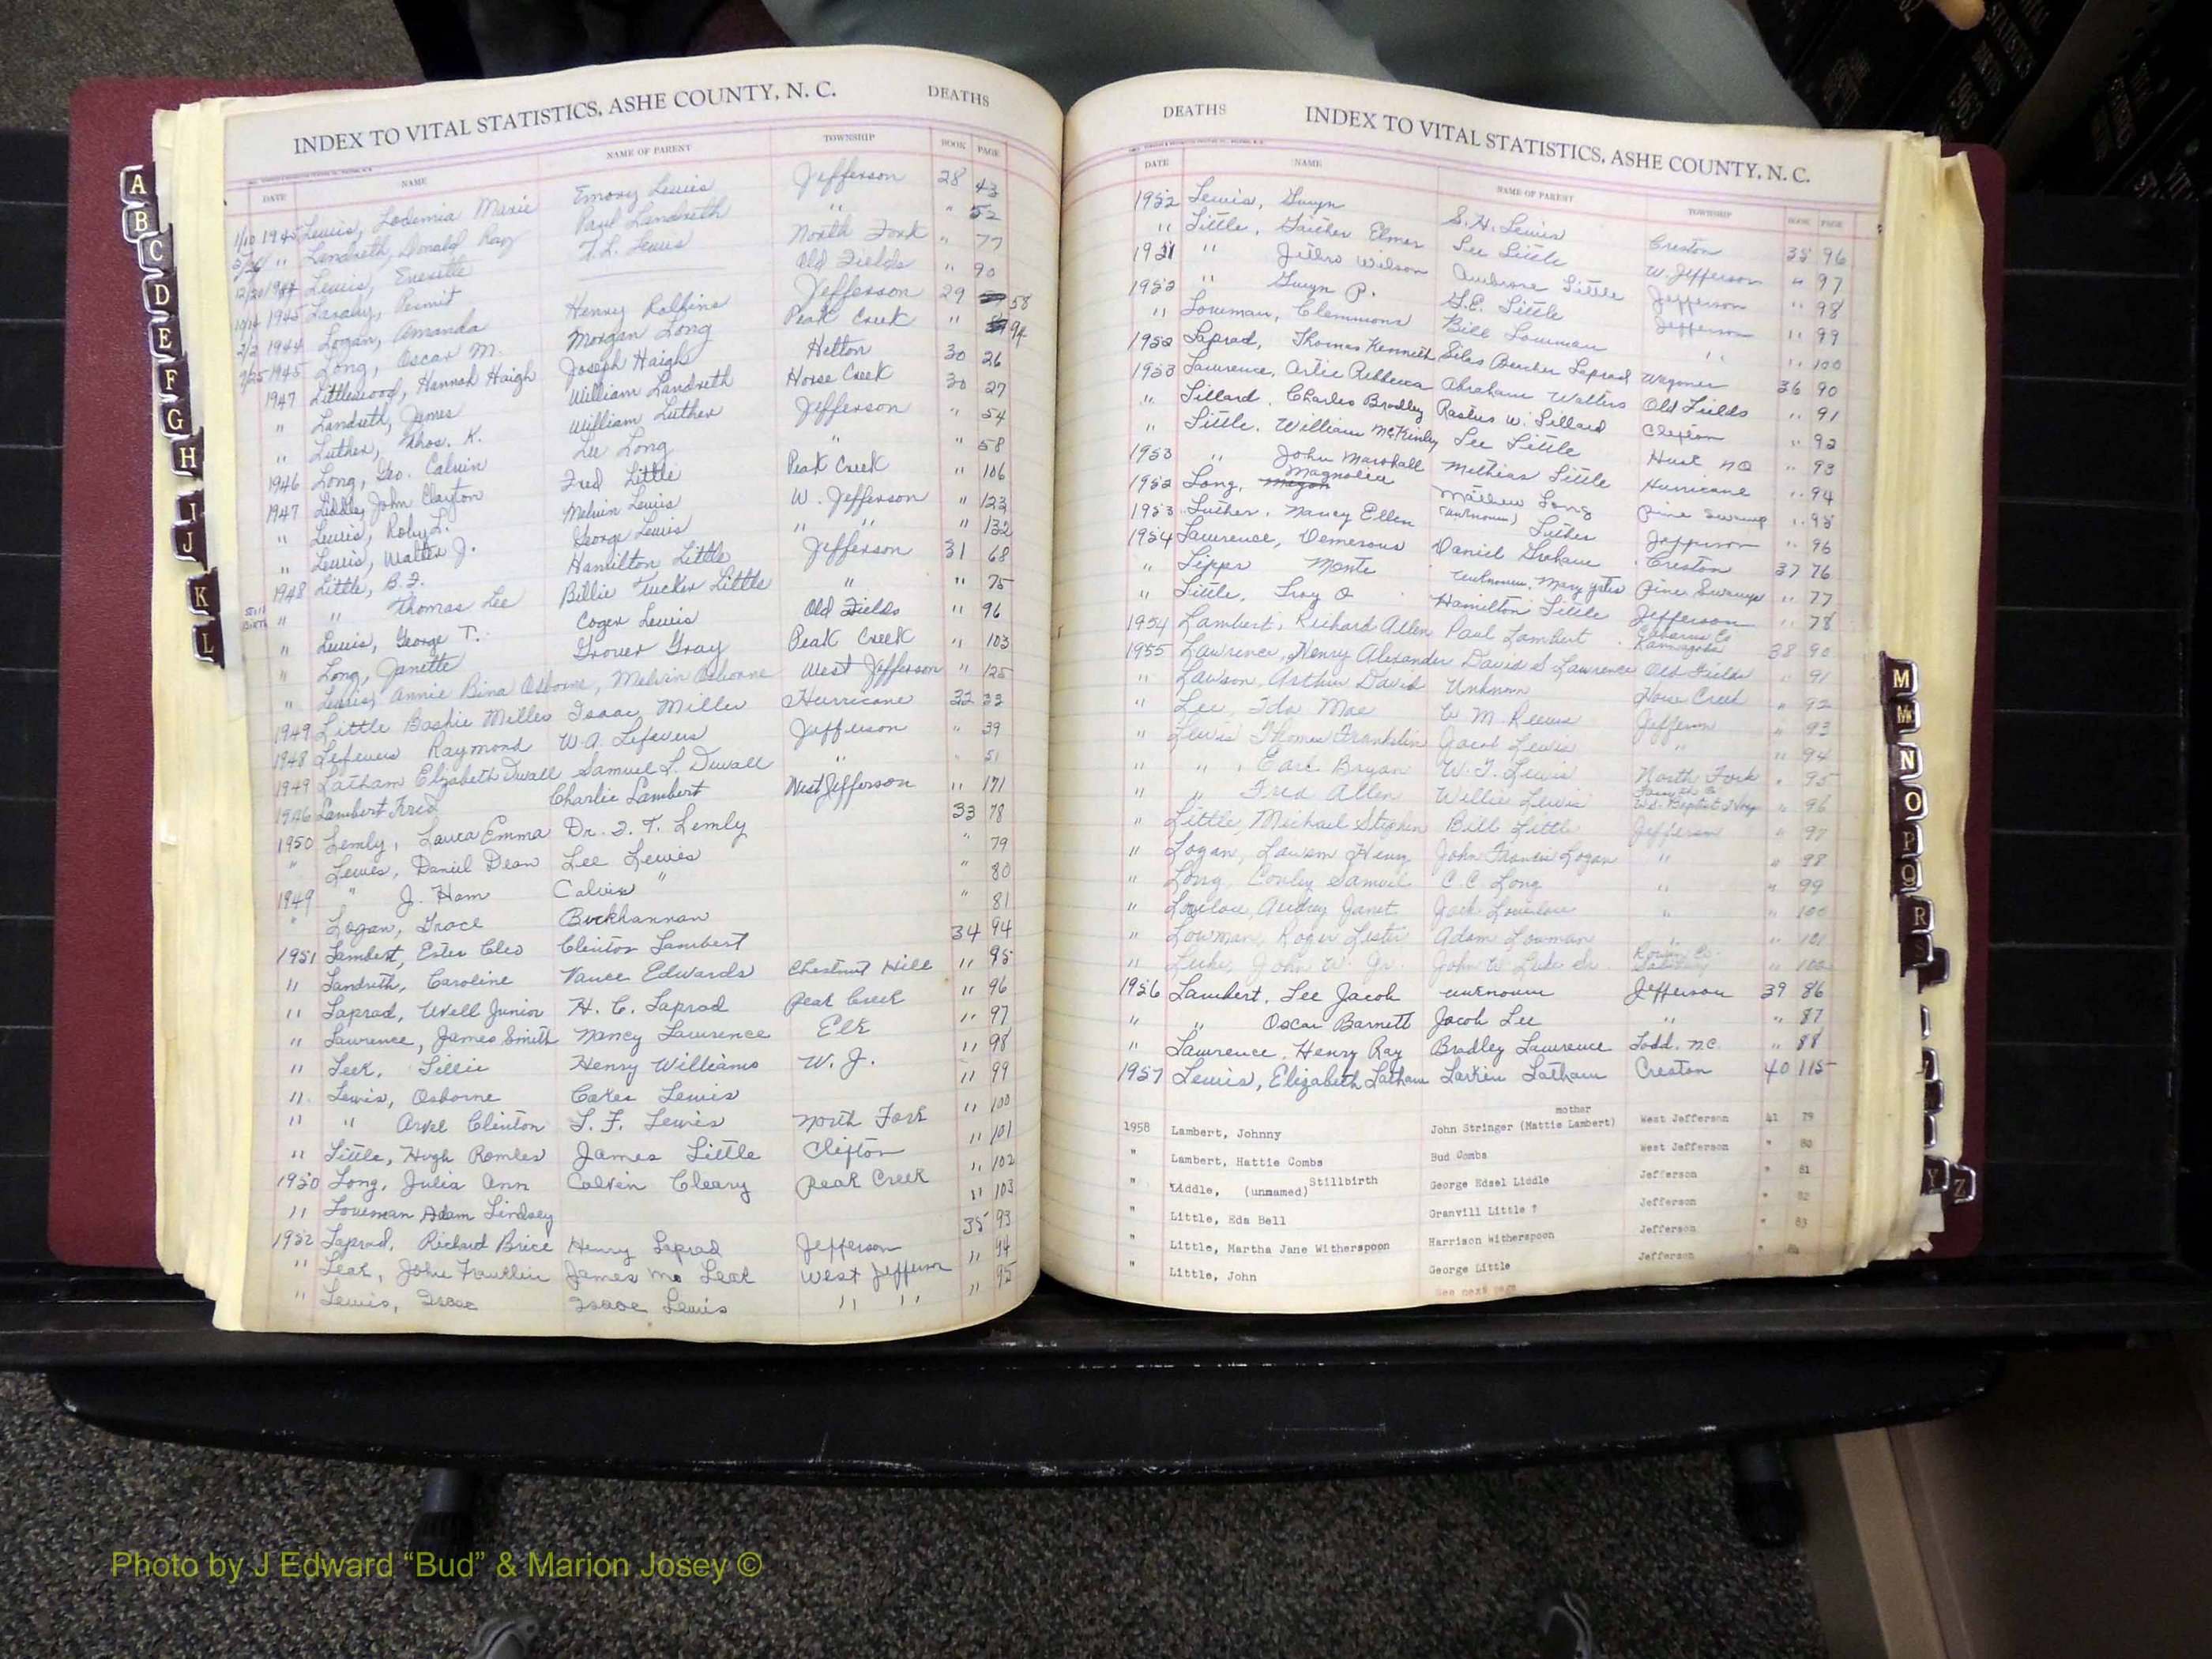 INDEX TO VITAL STATISTICS, ASHE COUNTY, N. C. DEATHS
DATE NAME NAME OF PARENT TOWNSHIP BOOK PAGE
1/10 1945 Lewis, Lodemia Maxie Emory Lewis Jefferson 28 43
" Landreth, Donald Ray Paul Landreth " " 52
Lewis, T. L. Lewis North Fork " 77
1945 Old Fields " 90
2/2 1944 Logan, Amanda Henry Rolfins Jefferson 29 58
7/25 1945 Long, Oscar M. Morgan Long Peak Creek " 94
1947 Littlewood, Hannah Haigh Joseph Haigh Helton 30 26
" Landreth, James William Landreth Horse Creek 30 27
" Luther, Thos. K. William Luther Jefferson " 54
1946 Long, Geo. Calvin Lee Long " " 58
1947 Liddle, John Clayton Fred Little Peak Creek " 106
" Lewis, Roby L. Melvin Lewis W. Jefferson " 123
" Lewis, Walter J. George Lewis " " " 132
1948 Little, B. F. Hamilton Little Jefferson 31 68
Still Birth " " Thomas Lee Billie Tucker Little " " 75
" Lewis, George T. Coger Lewis Old Fields " 96
" Long, Janette Grover Gray Peak Creek " 103
" Lewis, Annie Bina Osborne, Melvin Osborne West Jefferson " 125
1949 Little Bashie Miller Isaac Miller Hurricane 32 33
1948 Lefevers Raymond W. A. Lefevers Jefferson " 39
1949 Latham Elizabeth Duvall Samuel L. Duvall " " 51
1946 Lambert Fred Charlie Lambert West Jefferson " 171
1950 Lemly, Laura Emma Dr. F. T. Lemly 33 78
" Lewis, Daniel Dean Lee Lewis " 79
1949 " J. Ham Calvin " " 80
" Logan, Grace Buckhannan " 81
1951 Lambert, Ester Cleo Clinton Lambert 34 94
" Landreth, Caroline Vance Edwards Chestnut Hill " 95
" Laprad, Well Junior H. C. Laprad Peak Creek " 96
" Lawrence, James Smith Nancy Lawrence Elk " 97
" Leek, Lillie Henry Williams W. J. " 98
" Lewis, Osborne Lewis " 99
" " Arvel Clinton T. F. Lewis North Fork " 100
" Little, Hugh Romles James Little Clifton " 101
1950 Long, Julia Ann Calvin Cleary Peak Creek " 102
" Loweman Adam Lindsey " 103
1952 Laprad, Richard Brice Henry Laprad Jefferson 35 93
" Leak, John Franklin James Mc Leak West Jefferson " 94
" Lewis, Isaac Isaac Lewis " " " 95
DEATHS INDEX TO VITAL STATISTICS, ASHE COUNTY, N. C.
DATE NAME NAME OF PARENT TOWNSHIP BOOK PAGE
1952 Lewis, Gwyn S. H. Lewis Creston 35 96
" Little, Gaither Elmer Lee Little W. Jefferson " 97
1951 " Jethro Wilson Ambrose Little Jefferson " 98
1952 " Gwyn P. G. E. Little Jefferson " 99
" Lowman, Clemmons Bill Lowman " " 100
1952 Laprad, Thomas Kenneth Silas Beacher Laprad Wagoner 36 90
1953 Lawrence, Artie Rebbecca Abraham Walters Old Fields " 91
" Lillard, Charles Bradley Rastus W. Lillard Clifton " 92
" Little, William McKinley Lee Little " 93
1953 " John Marshall Mathias Little Hurricane " 94
1952 Long, Magnolia Mathew Long Pine Swamp " 95
1953 Luther, Nancy Ellen (unknown) Luther Jefferson " 96
1954 Lawrence, Demerous Daniel Graham Creston 37 76
" Lipps Monte Unknown, Mary Yates Pine Swamp " 77
" Little, Troy O Hamilton Little Jefferson " 78
1954 Lambert, Richard Allen Paul Lambert Cabarrus Co Kannapolis
1955 Lawrence, Henry Alexander David S Lawrence Old Fields 38 90
" Lawson, Arthur David Unknown Horse Creek " 91
" Lee, Ida Mae W M Reeves Jefferson " 92
" Lewis Thomas Franklin Jacob Lewis " " 93
" " , Earl Bryan W. F. Lewis North Fork " 94
" " Fred Allen Willie Lewis " 95
" Little, Michael Stephen Bill Little Jefferson " 96
" Logan, Lawson Henry John Francis Logan " " 97
" Long, Conley Samuel C. C. Long " " 98
" Lovelace, Audrey Janet Jack Lovelace " " 99
" Lowman, Roger Lester Adam Lowman " " 100
" Luke, John W. Jr. John W Luke Sr. Rowan Co. Salisbury " 101
1956 Lambert, Lee Jacob unknown Jefferson 39 86
" " Oscar Barnett Jacob Lee " " 87
" Lawrence, Henry Ray Bradley Lawrence Todd, N.C. " 88
1957 Lewis, Elizabeth Latham Larkin Latham Creston 40 115
1958 Lambert, Johnny John Stringer (Mattie Lambert) mother West Jefferson 41 79
" Lambert, Hattie Combs Bud Combs West Jefferson " 80
" Liddle, (unnamed) Stillbirth George Edsel Liddle Jefferson " 81
" Little, Eda Bell Granvill Little ? Jefferson " 82
" Little, Martha Jane Witherspoon Harrison Witherspoon Jefferson " 83
" Little, John George Little Jefferson " 84
See next page
A
B
C
D
E
F
G
H
I
J
K
L
M
Mc
N
O
P
Q
R
S
Y
Z
Photo by J Edward “Bud” & Marion Josey ©